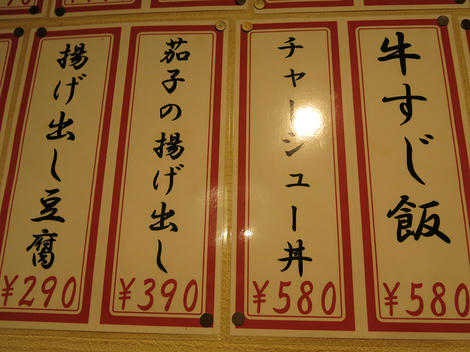 牛すじ飯
¥580
チャーシュー丼
¥580
茄子の揚げ出し
¥390
揚げ出し豆腐
¥290